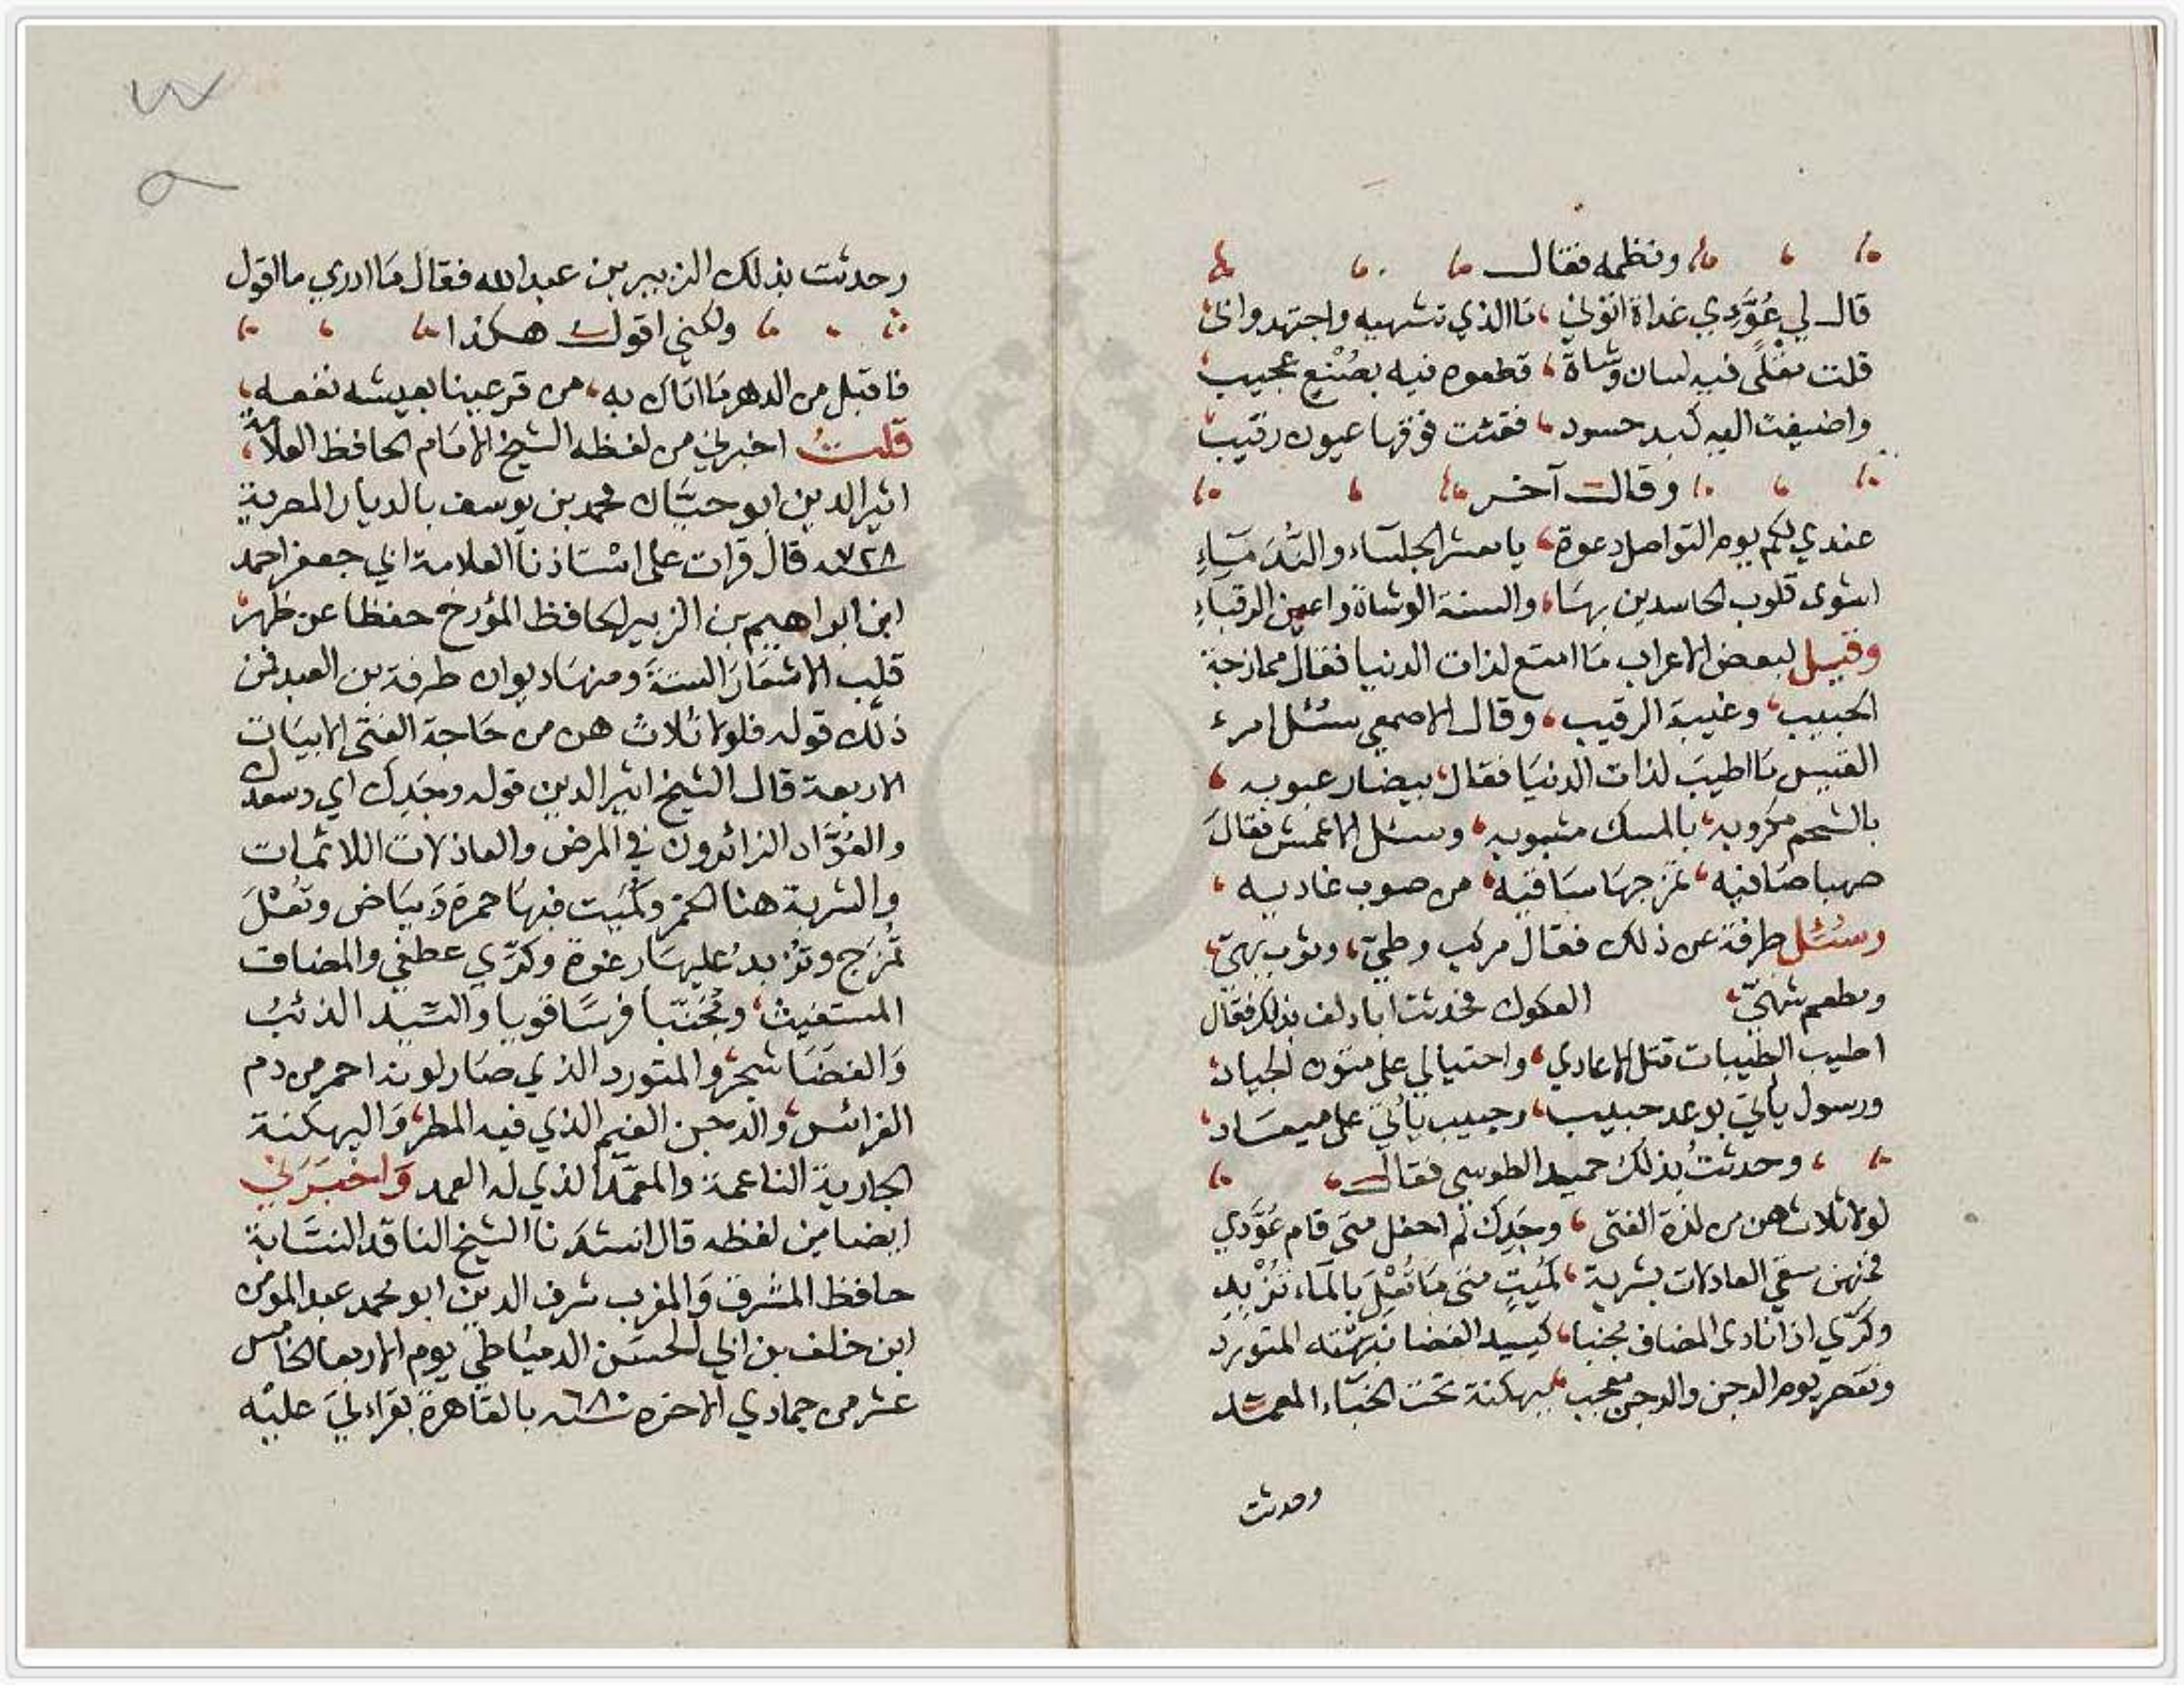 ونظمه فقال
قال لي عُوَّدي غداة اتوني ، مَا الذي تشتهيه واجتهدوا في
قلت مقلي فيه لسان وشاة ، قطعوه فيه بصُنْعٍ عجيب
واضيفت اليه كبد حسود ، فقئت فوقها عيون رقيب
وقال آخر
عندي لكم يوم التواصل دعوة ، يا معشر الجلسَاء والنُدَمَاءِ
اشوى قلوب الحاسدين بهَا ، والسنة الوشاة واعين الرقبَاءِ
وقيل لبعض الاعراب مَا امتع لذات الدنيا فقال ممازحة
الحبيب ، وغيبة الرقيب ، وقال الاصمعي سئل امرء
القيس مَا اطيبَ لذات الدنيَا فقال بيضا رعبوبه ،
بالشحم مكروبه ، بالمسك مشبوبه ، وسئل الاعمش فقالَ
صهبا صَافيه ، تمزجهَا سَاقيه ، من صوب غاديه ،
وسُئل طرفة عن ذلك فقال مركب وطيّ ، وثوب بهيّ ،
ومطعم شهيّ ، العكوك فحدثت ابا دلف بذلك فقال
اطيب الطيبات قتل الاعادي ، واختيالي على متون الجياد ،
ورسول يأتي بوعد حبيب ، وحبيب يأتي على ميعَاد ،
وحدثتُ بذلك حميد الطوسي فقال
لولا ثلاث هن من لذة الفتى ، وجَدِك لم احفل متى قام عُوَّدي
فمنهن سقي العاذلات بشربة ، كُمَيتٍ متى مَا تُعْلَ بالمَاء تُزْبِدِ
وكرّي اذا نادى المضاف مجنبا ، كسيد الغضا نبهتَه المتورد
وتقصير يوم الدجن والدجن معجب ، ببهكنة تحت الخبَاء المعمّد
وحدثت
وحدثت بذلك الزبير بن عبد الله فقال مَا ادري ما اقول
ولكني اقول هكذا
فاقبل من الدهر مَا اتاك به ، من قرعينا بعيشه نفعه ،
قلتُ اخبرني من لفظه الشيخ الامَام الحافظ العلامة ،
اثير الدين ابو حيَّان محمد بن يوسف بالديار المصرية
٧٢٨ قال قرات على اسْتاذنا العلامة ابي جعفر احمد
ابن ابراهيم بن الزبير الحافظ المؤرخ حفظا عن ظهر
قلب الاشعَارَ الستةَ ومنهَا ديوان طرفة بن العبد فمن
ذلك قوله فلولا ثلاث هن من حَاجة الفتى الابيَات
الاربعة قال الشيخ اثير الدين قوله وجَدِك اي وسعدك
والعُوَّاد الزائرون في المرض والعاذلات اللائمات
والشربة هنا الخمر وكُمَيت فيهَا حمرة وَبيَاض وتُعْلَ
تُمزَج وتُزْبدُ عليهَا رغوة وكرّي عطفي والمضاف
المستغيث ، ومُجَنّبا فرسًا قويا والسّيد الذئبُ
وَالغضَا شجر ، والمتورد الذي صَار لونه احمر من دم
الفرائس ، والدجن الغيم الذي فيه المطر ، وَالبهكنة
الجارية الناعمة والمعمّد الذي له العمد وَاخبَرَني
ايضا من لفظه قال انشدَنا الشيخ الناقد النسَّابة
حافظ المشرق وَالمغرب شرف الدين ابو محمد عبد المومن
ابن خلف بن ابي الحسَن الدميَاطي يوم الاربعا الخامس
عشر من جمادي الاخرة سنة ٦٨٠ بالقَاهرة بقراءتي عليْه